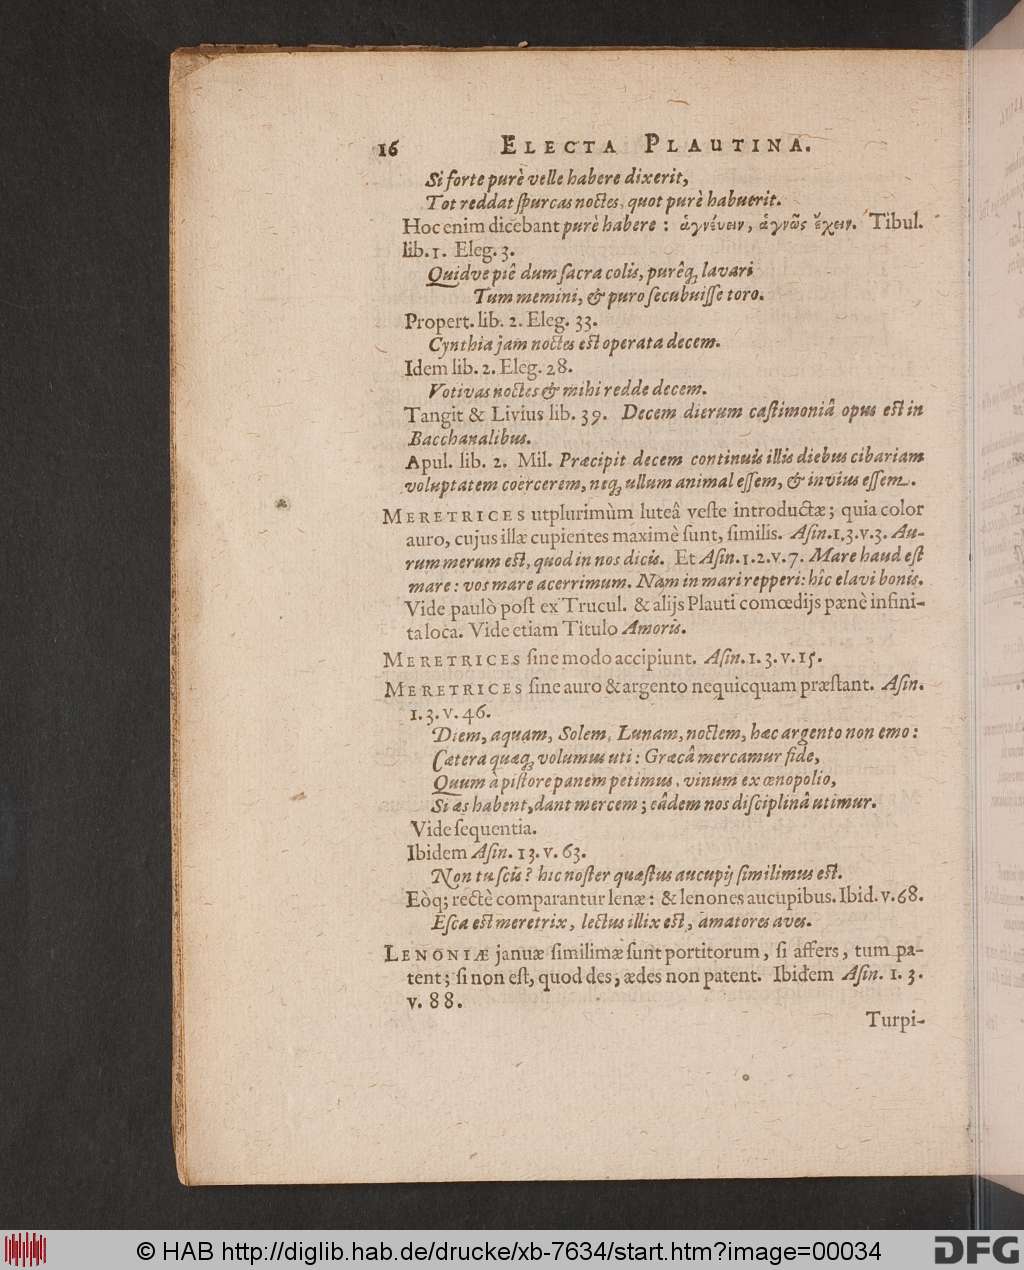 16 ELECTA PLAUTINA.
Si forte purè velle habere dixerit,
Tot reddat spurcas noctes, quot purè habuerit.
Hoc enim dicebant purè habere : ἁγνέυειν, ἁγνῶς ἔχειν. Tibul.
lib. 1. Eleg. 3.
Quidve piê dum sacra colis, purêq; lavari
Tum memini, & puro secubuisse toro.
Propert. lib. 2. Eleg. 33.
Cynthia jam noctes est operata decem.
Idem lib. 2. Eleg. 28.
Votivas noctes & mihi redde decem.
Tangit & Livius lib. 39. Decem dierum castimoniâ opus est in
Bacchanalibus.
Apul. lib. 2. Mil. Præcipit decem continuis illis diebus cibariam
voluptatem coërcerem, neq; ullum animal essem, & invius essem.
MERETRICES utplurimùm luteâ veste introductæ; quia color
auro, cujus illæ cupientes maximè sunt, similis. Asin. 1. 3. v. 3. Au-
rum merum est, quod in nos dicis. Et Asin. 1. 2. v. 7. Mare haud est
mare : vos mare acerrimum. Nam in mari repperi: hîc elavi bonis.
Vide paulò post ex Trucul. & alijs Plauti comœdijs pænè infini-
ta loca. Vide etiam Titulo Amoris.
MERETRICES sine modo accipiunt. Asin. 1. 3. v. 15.
MERETRICES sine auro & argento nequicquam præstant. Asin.
1. 3. v. 46.
Diem, aquam, Solem, Lunam, noctem, hæc argento non emo:
Cætera quæq; volumus uti : Græcâ mercamur fide,
Quum à pistore panem petimus, vinum ex œnopolio,
Si æs habent, dant mercem ; eâdem nos disciplinâ utimur.
Vide sequentia.
Ibidem Asin. 13. v. 63.
Non tu scis? hic noster quæstus aucupij similimus est.
Eòq; rectè comparantur lenæ: & lenones aucupibus. Ibid. v. 68.
Esca est meretrix, lectus illix est, amatores aves.
LENONIÆ januæ similimæ sunt portitorum, si affers, tum pa-
tent; si non est, quod des; ædes non patent. Ibidem Asin. 1. 3.
v. 88.
Turpi-
© HAB http://diglib.hab.de/drucke/xb-7634/start.htm?image=00034
DFG